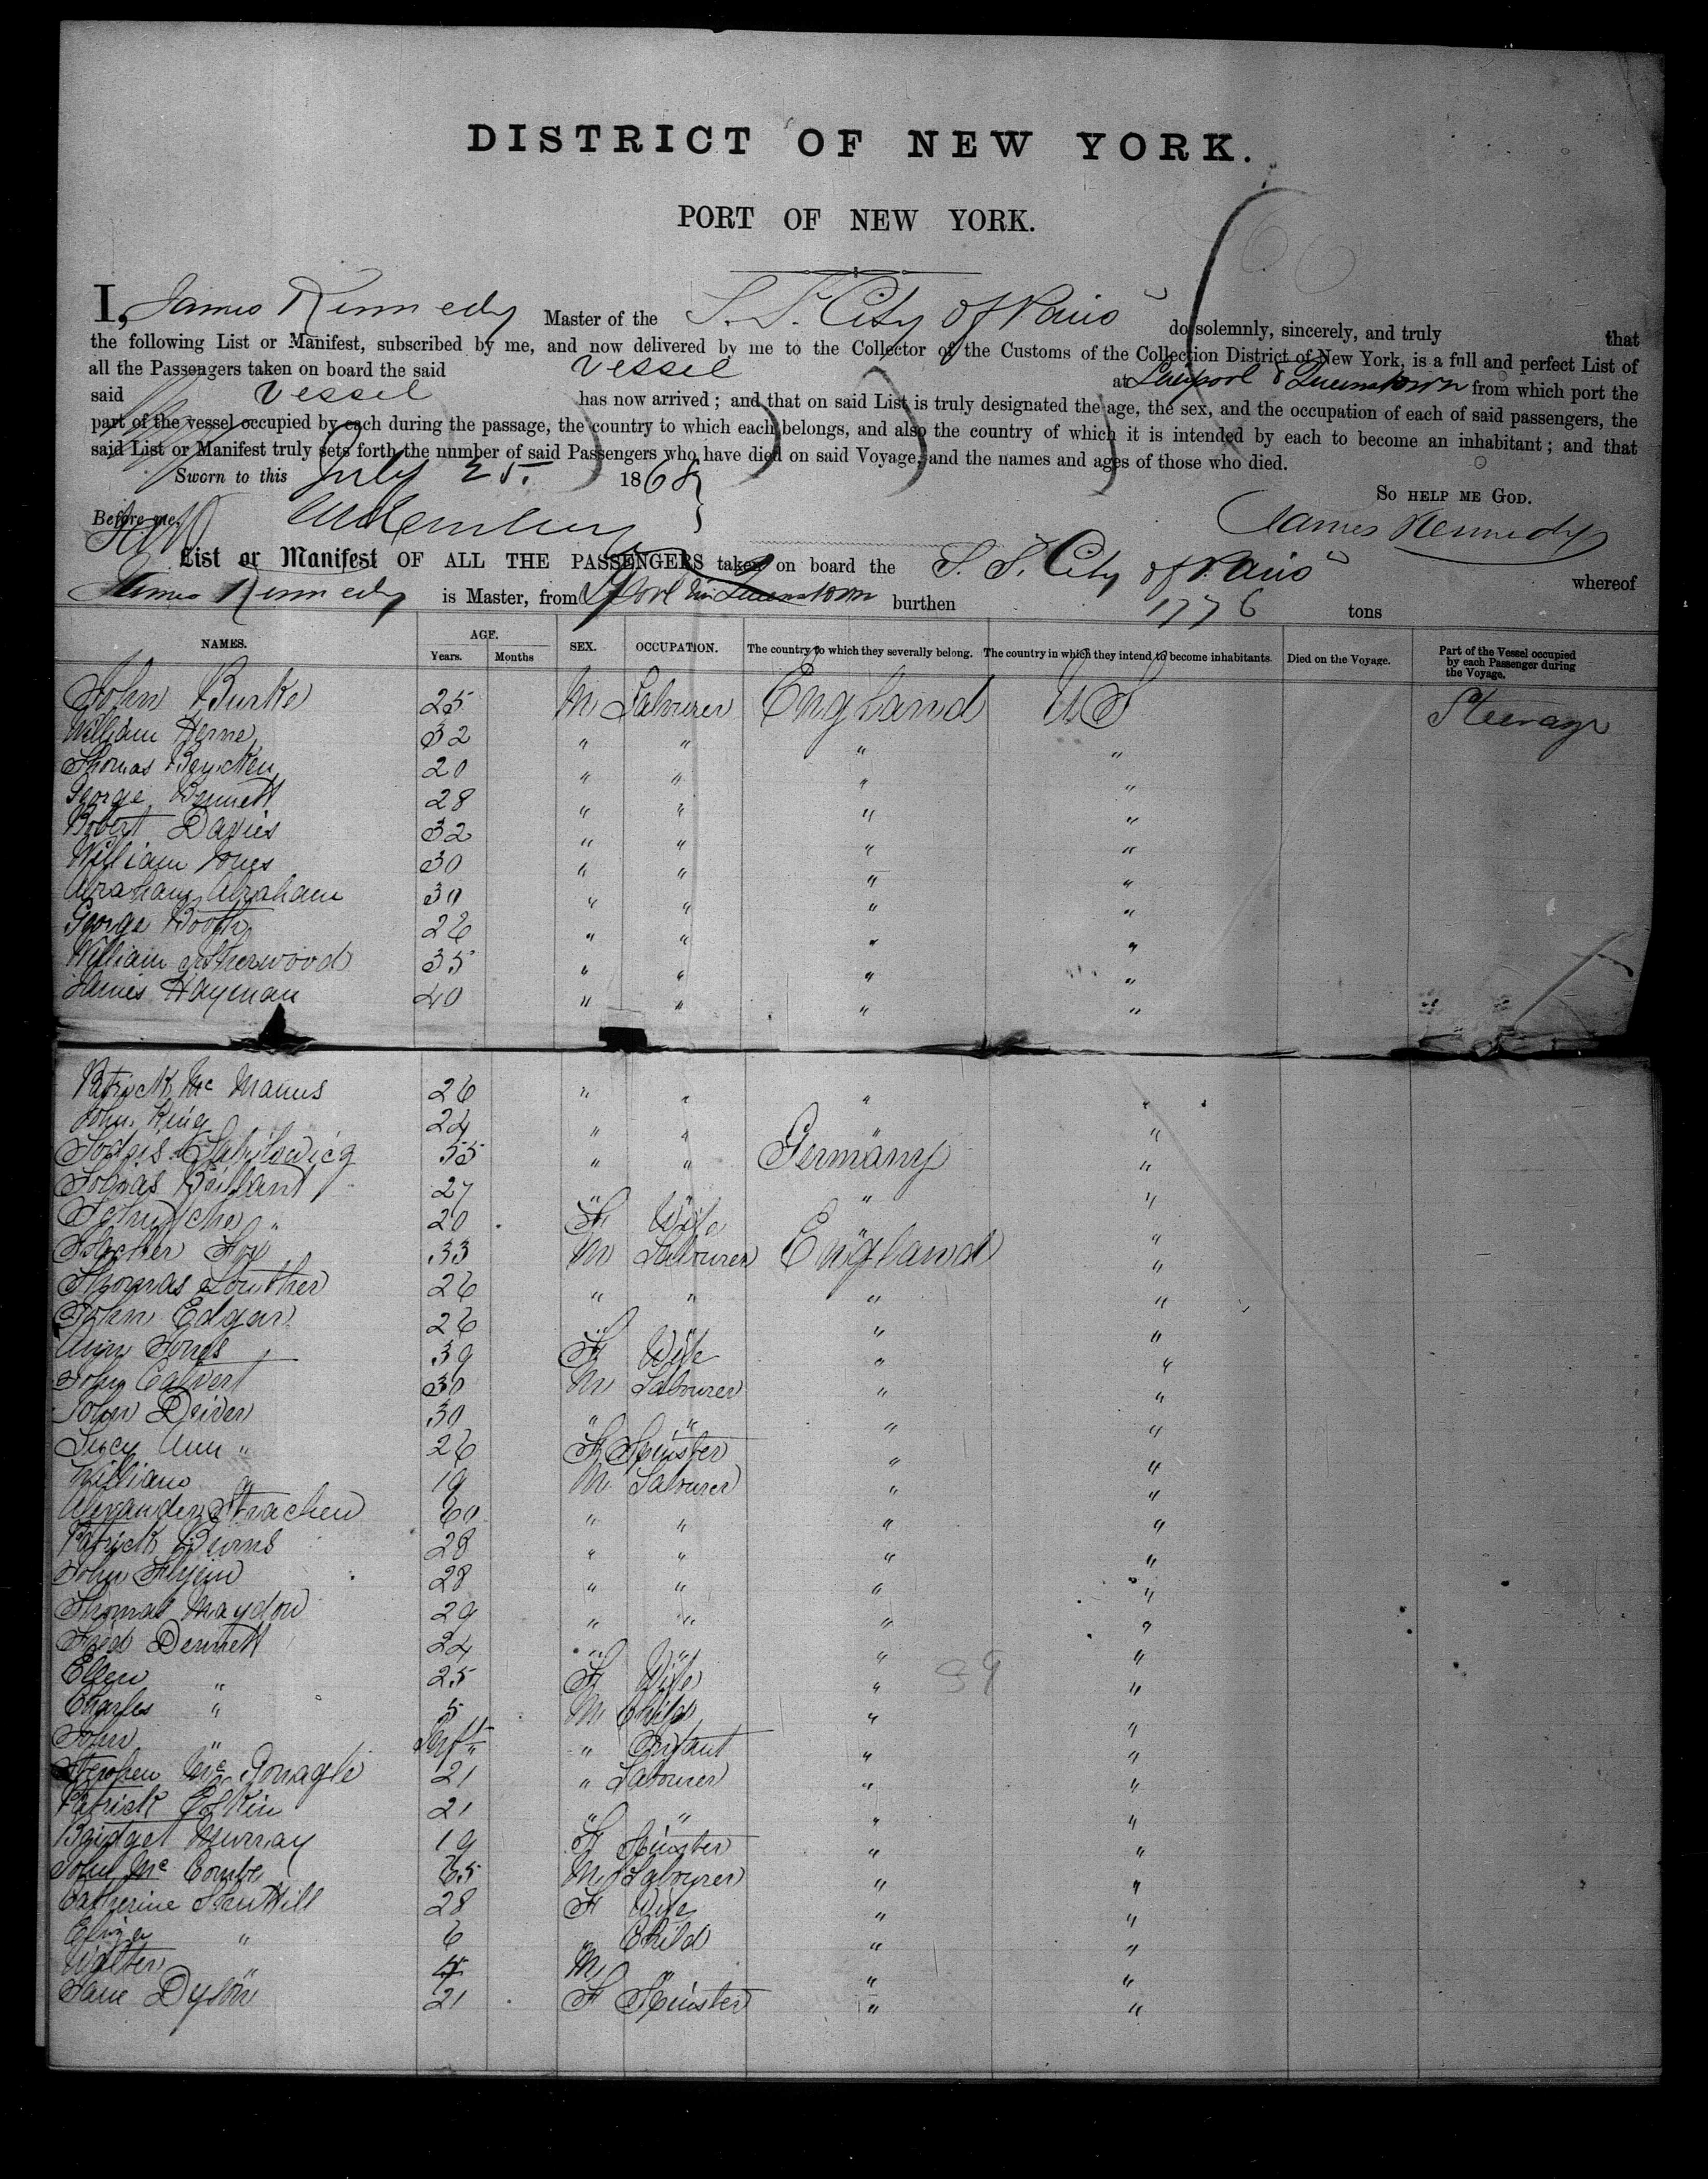 DISTRICT OF NEW YORK.
PORT OF NEW YORK.
I, James Kennedy Master of the S. S. City of Paris do solemnly, sincerely, and truly that
the following List or Manifest, subscribed by me, and now delivered by me to the Collector of the Customs of the Collection District of New York, is a full and perfect List of
all the Passengers taken on board the said Vessel at Liverpool & Queenstown from which port the
said Vessel has now arrived; and that on said List is truly designated the age, the sex, and the occupation of each of said passengers, the
part of the vessel occupied by each during the passage, the country to which each belongs, and also the country of which it is intended by each to become an inhabitant; and that
said List or Manifest truly sets forth the number of said Passengers who have died on said Voyage, and the names and ages of those who died.
Sworn to this July 25. 1868
So HELP ME GOD.
Before me, James Kennedy
List or Manifest OF ALL THE PASSENGERS taken on board the S. S. City of Paris whereof
James Kennedy is Master, from Lpool via Queenstown burthen 1776 tons
NAMES. AGE. Years. Months SEX. OCCUPATION. The country to which they severally belong. The country in which they intend to become inhabitants. Died on the Voyage. Part of the Vessel occupied by each Passenger during the Voyage.
John Burke 25 M Labourer England US Steerage
William Herne 32 " " " "
Thomas 20 " " " "
George Bennett 28 " " " "
Robert Davies 32 " " " "
William Jones 30 " " " "
Abraham Abraham 30 " " " "
George Booth 26 " " " "
William Isherwood 35 " " " "
James Hayman 40 " " " "
Patrick Mc Manus 26 " " " "
John King 24 " " " "
55 " " Germany "
27 " " " "
" 20 F Wife " "
Fox 33 M Labourer England "
Thomas Louther 26 " " " "
John Edgar 26 " " " "
Ann Jones 39 F Wife " "
John Calvert 30 M Labourer " "
John Driver 30 " " " "
Lucy Ann " 26 F Spinster " "
William " 19 M Labourer " "
Alexander Strachen 60 " " " "
Patrick Burns 28 " " " "
John 28 " " " "
Thomas Maydon 29 " " " "
Fred Dennett 24 " " " "
Ellen " 25 F Wife " "
Charles " 5 M Child " "
John " Inft " Infant " "
Stephen Mc Gonagle 21 " Labourer " "
Patrick Eskin 21 " " " "
Bridget Murray 19 F Spinster " "
John Mc Combe 65 M Labourer " "
Catherine 28 F Wife " "
Eliza " 6 " Child " "
Walter " 4 M " " "
Jane Dyson 21 F Spinster " "